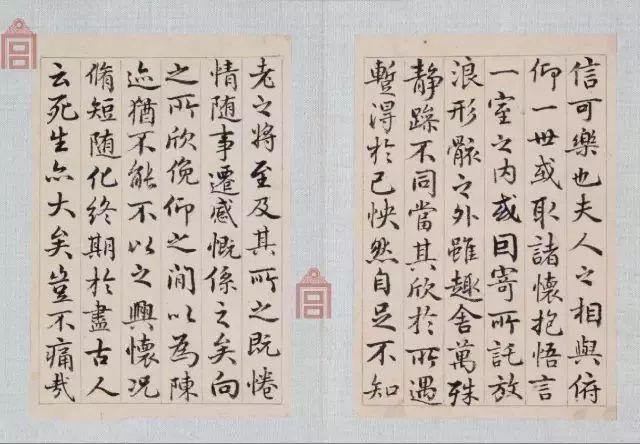 信可樂也夫人之相與俯
仰一世或取諸懷抱悟言
一室之内或因寄所託放
浪形骸之外雖趣舍萬殊
静躁不同當其欣於所遇
暫得於己怏然自足不知
老之將至及其所之既惓
情随事遷感慨係之矣向
之所欣俛仰之間以為陳
迹猶不能不以之興懷況
脩短随化終期於盡古人
云死生亦大矣豈不痛哉